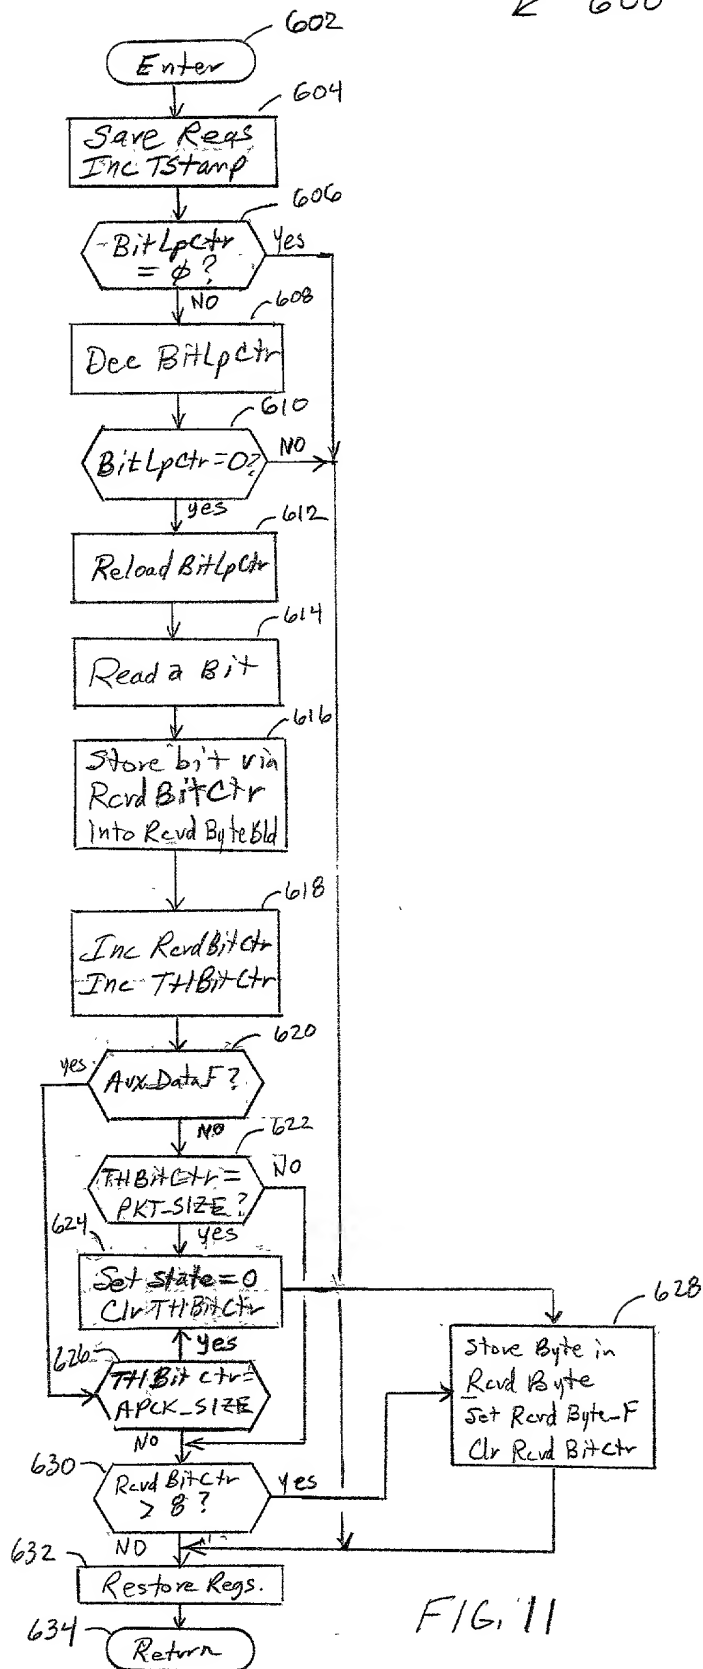 600
602
Enter
604
Save Regs
Inc TStamp
606
BitLpCtr
= ϕ?
Yes
NO
608
Dec BitLpCtr
610
BitLpCtr=0?
NO
yes
612
Reload BitLpCtr
614
Read a Bit
616
Store bit via
Rcvd BitCtr
into Rcvd ByteBld
618
Inc RcvdBitCtr
Inc THBitCtr
620
yes
Aux_Data_F?
NO
622
THBitCtr=
PKT_SIZE?
NO
yes
624
Set state=0
Clr THBitCtr
628
Store Byte in
Rcvd Byte
Set Rcvd Byte_F
Clr Rcvd BitCtr
yes
626
THBit ctr=
APCK_SIZE
NO
630
Rcvd BitCtr
> 8?
Yes
NO
632
Restore Regs.
634
Return
FIG. 11